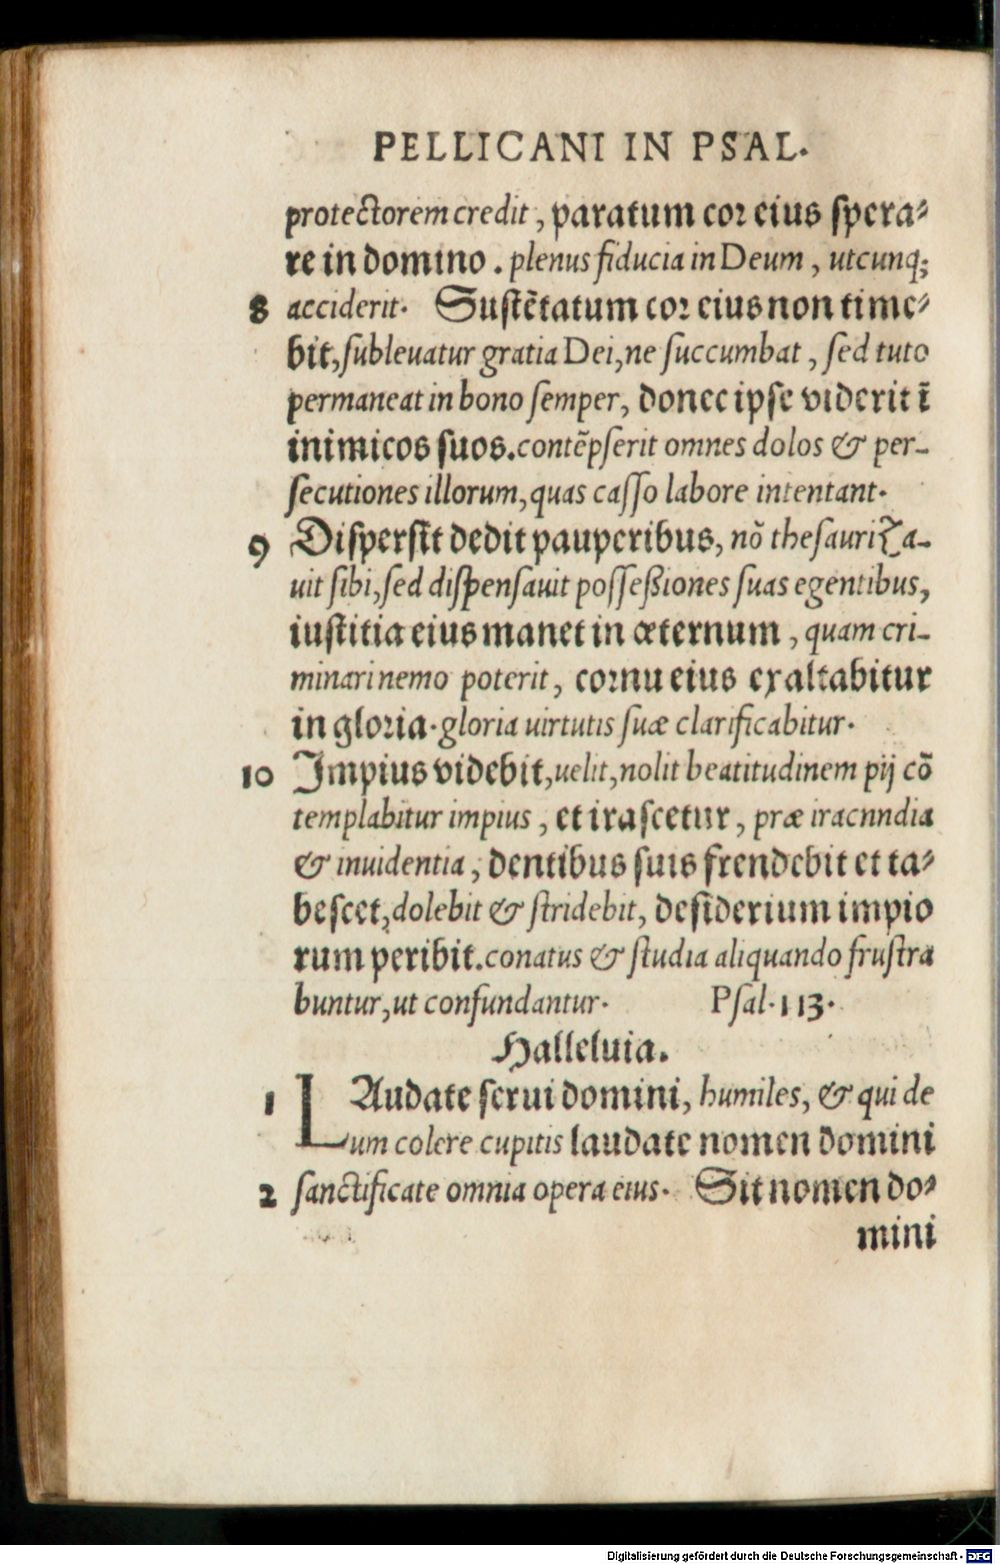 PELLICANI IN PSAL.
protectorem credit, paratum cor eius spera⸗
re in domino. plenus fiducia in Deum, utcunq;
8 acciderit. Sustẽtatum cor eius non time⸗
bit, subleuatur gratia Dei, ne succumbat, sed tuto
permaneat in bono semper, donec ipse viderit ĩ
inimicos suos. contẽpserit omnes dolos & per-
secutiones illorum, quas casso labore intentant.
9 Dispersit dedit pauperibus, nõ thesauriza-
uit sibi, sed dispensauit possessiones suas egentibus,
iustitia eius manet in æternum, quam cri-
minari nemo poterit, cornu eius exaltabitur
in gloria. gloria uirtutis suæ clarificabitur.
10 Impius videbit, uelit, nolit beatitudinem pij cõ
templabitur impius, et irascetur, præ iracnndia
& inuidentia, dentibus suis frendebit et ta⸗
bescet, dolebit & stridebit, desiderium impio
rum peribit. conatus & studia aliquando frustra
buntur, ut confundantur. Psal. 113.
Halleluia.
1 LAudate serui domini, humiles, & qui de
um colere cupitis laudate nomen domini
2 sanctificate omnia opera eius. Sit nomen do⸗
mini
Digitalisierung gefördert durch die Deutsche Forschungsgemeinschaft - DFG